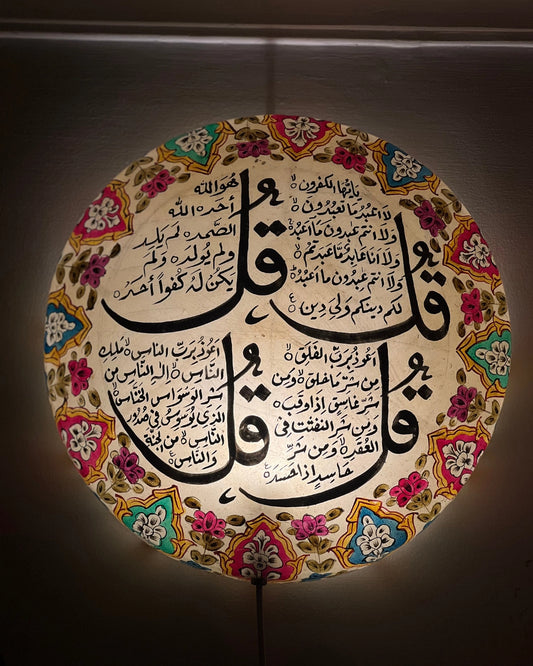 قُلْ
يٰٓاَيُّهَا الْكٰفِرُونَ
لَا اَعْبُدُ مَا تَعْبُدُونَ
وَلَا اَنْتُمْ عٰبِدُونَ مَا اَعْبُدُ
وَلَا اَنَا عَابِدٌ مَا عَبَدْتُّمْ
وَلَا اَنْتُمْ عٰبِدُونَ مَا اَعْبُدُ
لَكُمْ دِينُكُمْ وَلِيَ دِينِ
قُلْ
هُوَ اللهُ
اَحَدٌ اللهُ
الصَّمَدُ لَمْ يَلِدْ
وَلَمْ يُولَدْ وَلَمْ
يَكُنْ لَهُ كُفُوًا اَحَدٌ
قُلْ
اَعُوذُ بِرَبِّ الْفَلَقِ
مِنْ شَرِّ مَا خَلَقَ وَمِنْ
شَرِّ غَاسِقٍ اِذَا وَقَبَ
وَمِنْ شَرِّ النَّفّٰثٰتِ فِي
الْعُقَدِ وَمِنْ شَرِّ
حَاسِدٍ اِذَا حَسَدَ
قُلْ
اَعُوذُ بِرَبِّ النَّاسِ مَلِكِ
النَّاسِ اِلٰهِ النَّاسِ مِنْ
شَرِّ الْوَسْوَاسِ الْخَنَّاسِ
الَّذِي يُوَسْوِسُ فِي صُدُورِ
النَّاسِ مِنَ الْجِنَّةِ
وَالنَّاسِ